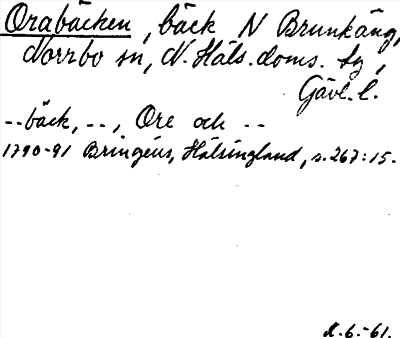 Orabäcken, bäck N Brunkäng,
Norrbo sn, N. Häls. doms. tg,
Gävl. l.
--bäck, --, Ore och --
1790-91 Bringéus, Hälsingland, s. 267:15.
X.6.-61.